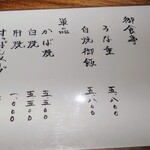 御食事
うな重 五、八〇〇
白焼御飯 五、八〇〇
単品
かば焼 五、五〇〇
白焼 五、五〇〇
肝焼 一、〇〇〇